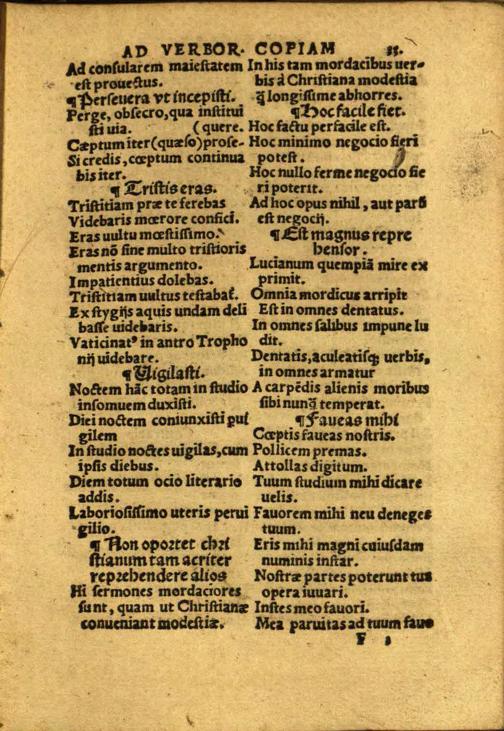 AD VERBOR. COPIAM 33.
Ad consularem maiestatem
est prouectus.
¶ Perseuera vt incepisti.
Perge, obsecro, qua institui
sti uia. (quere.
Cæptum iter (quæso) prose-
Si credis, cœptum continua
bis iter.
¶ Tristis eras.
Tristitiam præ te ferebas
Videbaris mœrore confici.
Eras uultu mœstissimo.
Eras nõ sine multo tristioris
mentis argumento.
Impatientius dolebas.
Tristitiam uultus testabat̃.
Ex stygijs aquis undam deli
basse uidebaris.
Vaticinatꝰ in antro Tropho
nij uidebare.
¶ Uigilasti.
Noctem hãc totam in studio
insomuem duxisti.
Diei noctem coniunxisti pui
gilem
In studio noctes uigilas, cum
ipsis diebus.
Diem totum ocio literario
addis.
Laboriosissimo uteris perui
gilio.
¶ Non oportet chri
stianum tam acriter
reprehendere alios
Hi sermones mordaciores
sunt, quam ut Christianæ
conueniant modestiæ.
In his tam mordacibus uer-
bis à Christiana modestia
q̃ longissime abhorres.
¶ Hoc facile fiet.
Hoc factu perfacile est.
Hoc minimo negocio fieri
potest.
Hoc nullo ferme negocio fie
ri poterit.
Ad hoc opus nihil, aut parũ
est negocij.
¶ Est magnus repre
hensor.
Lucianum quempiã mire ex
primit.
Omnia mordicus arripit
Est in omnes dentatus.
In omnes salibus impune lu
dit.
Dentatis, aculeatisq; uerbis,
in omnes armatur
A carpẽdis alienis moribus
sibi nunq̃ temperat.
¶ Faueas mihi
Cœptis faueas nostris.
Pollicem premas.
Attollas digitum.
Tuum studium mihi dicare
uelis.
Fauorem mihi neu deneges
tuum.
Eris mihi magni cuiusdam
numinis instar.
Nostræ partes poterunt tua
opera iuuari.
Instes meo fauori.
Mea paruitas ad tuum fauo
F